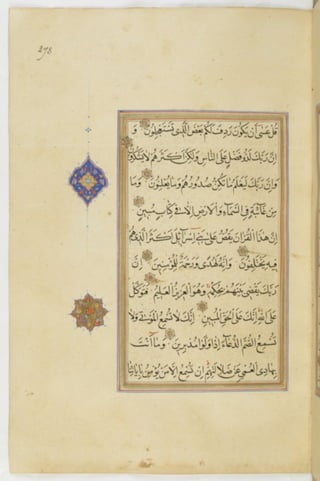 278
قُلْ عَسَىٰ أَنْ يَكُونَ رَدِفَ لَكُمْ بَعْضُ الَّذِي تَسْتَعْجِلُونَ وَ
اِنَّ رَبَّكَ لَذُو فَضْلٍ عَلَى النَّاسِ وَلٰكِنَّ اَكْثَرَهُمْ لَا يَشْكُرُونَ
وَاِنَّ رَبَّكَ لَيَعْلَمُ مَا تُكِنُّ صُدُورُهُمْ وَمَا يُعْلِنُونَ وَمَا
مِنْ غَائِبَةٍ فِي السَّمَاءِ وَالْاَرْضِ اِلَّا فِي كِتَابٍ مُبِينٍ
اِنَّ هٰذَا الْقُرْاٰنَ يَقُصُّ عَلَىٰ بَنِي اِسْرَائِيلَ اَكْثَرَ الَّذِي هُمْ
فِيهِ يَخْتَلِفُونَ وَاِنَّهُ لَهُدًى وَرَحْمَةٌ لِلْمُؤْمِنِينَ اِنَّ
رَبَّكَ يَقْضِي بَيْنَهُمْ بِحُكْمِهِ وَهُوَ الْعَزِيزُ الْعَلِيمُ فَتَوَكَّلْ
عَلَى اللّٰهِ اِنَّكَ عَلَى الْحَقِّ الْمُبِينِ اِنَّكَ لَا تُسْمِعُ الْمَوْتَىٰ وَلَا
تُسْمِعُ الصُّمَّ الدُّعَاءَ اِذَا وَلَّوْا مُدْبِرِينَ وَمَا اَنْتَ
بِهَادِي الْعُمْيِ عَنْ ضَلَالَتِهِمْ اِنْ تُسْمِعُ اِلَّا مَنْ يُؤْمِنُ بِاٰيَاتِنَا